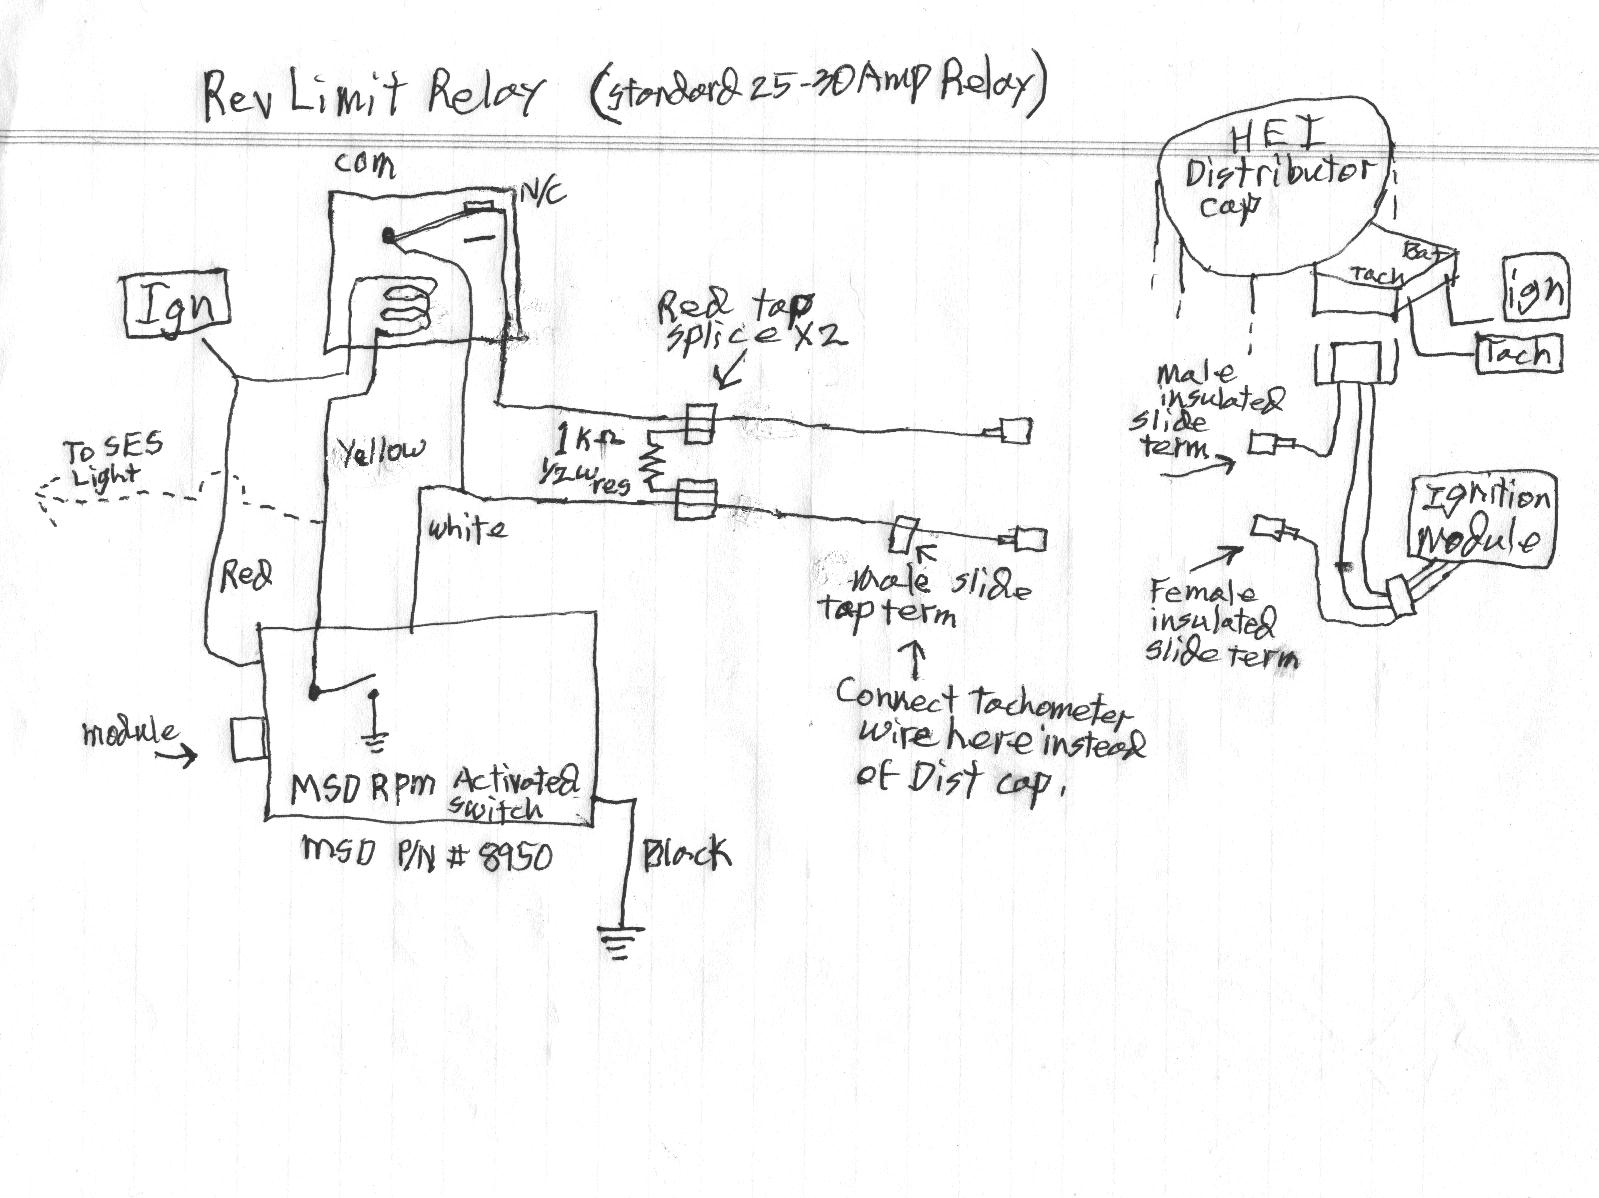 Rev Limit Relay (standard 25-30 Amp Relay)
com
N/C
Ign
Red tap
splice x2
1KΩ
1/2w
res
Yellow
To SES
Light
white
Red
male slide
tap term
Connect Tachometer
wire here instead
of Dist cap.
module
MSD RPM Activated
switch
MSD P/N # 8950
Black
HEI
Distributor
cap
Bat
Tach
ign
Tach
Male
insulated
slide
term
Ignition
Module
Female
insulated
slide term